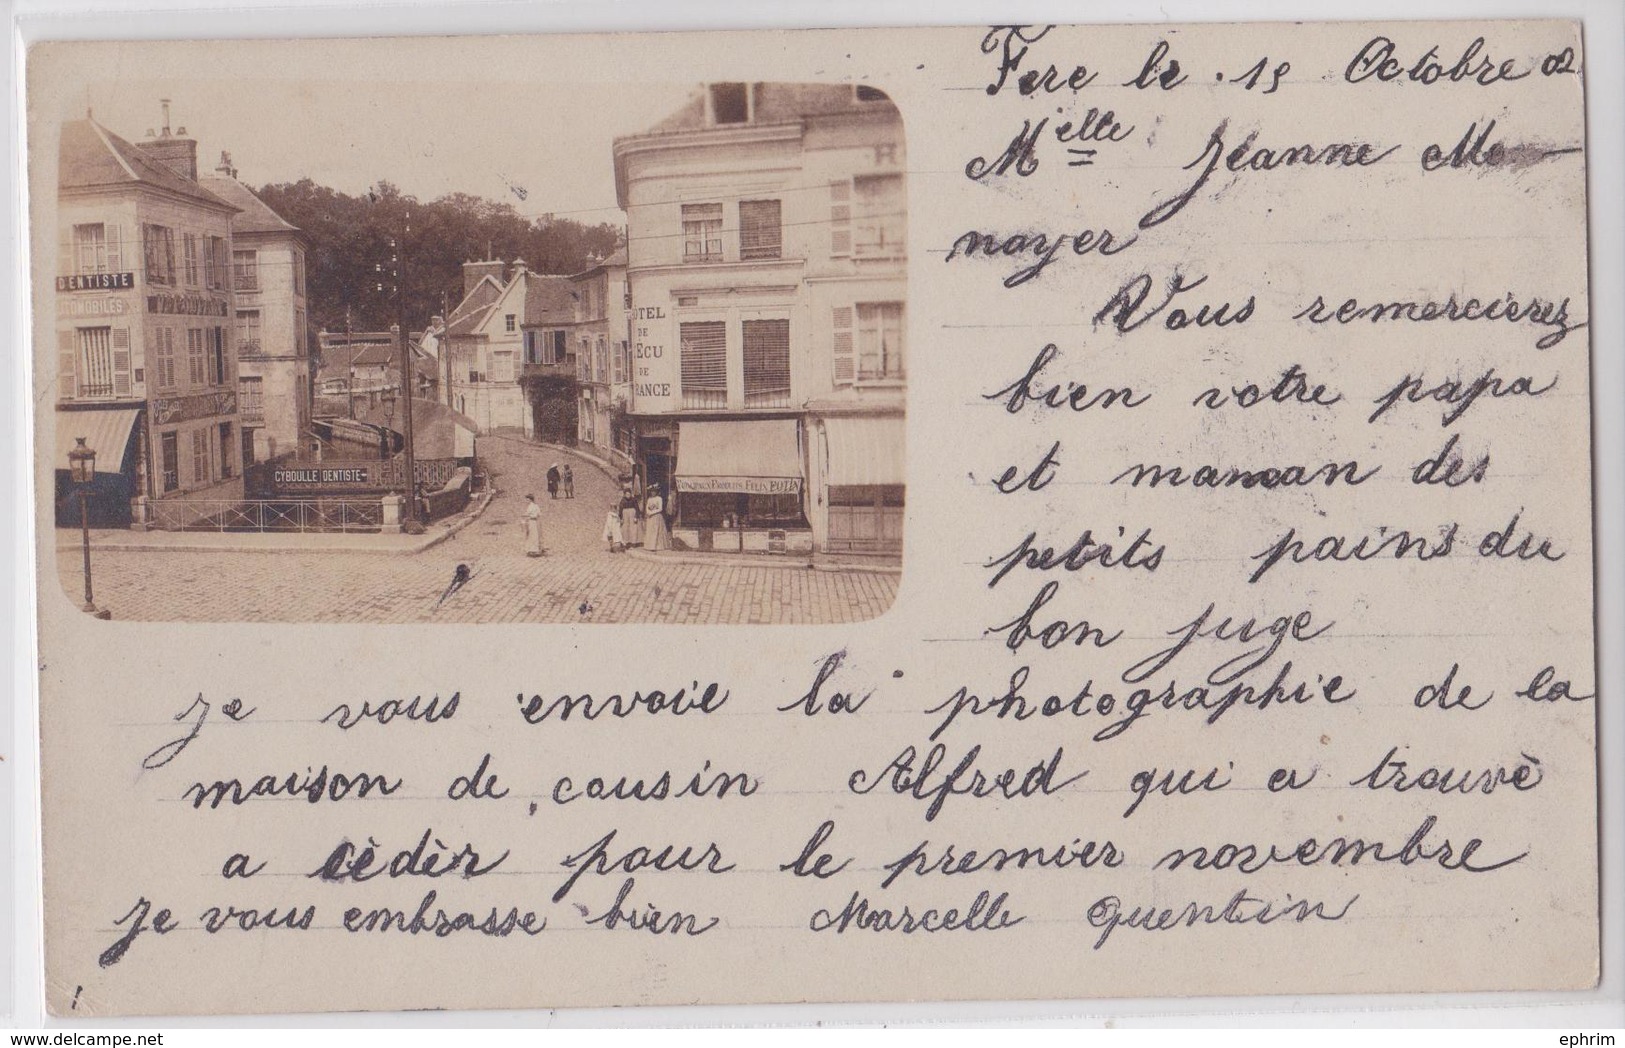 DENTISTE
CYBOULLE DENTISTE
HOTEL
DE
L'ECU
DE
FRANCE
PRODUITS FELIX POTIN
Fere le 15 Octobre 02
Melle Jeanne Mo-
noyer
Vous remercierez
bien votre papa
et maman des
petits pains du
bon juge
Je vous envoie la photographie de la
maison de cousin Alfred qui a trouvè
a cèdèr pour le premier novembre
Je vous embrasse bien Marcelle Quentin
ephrim